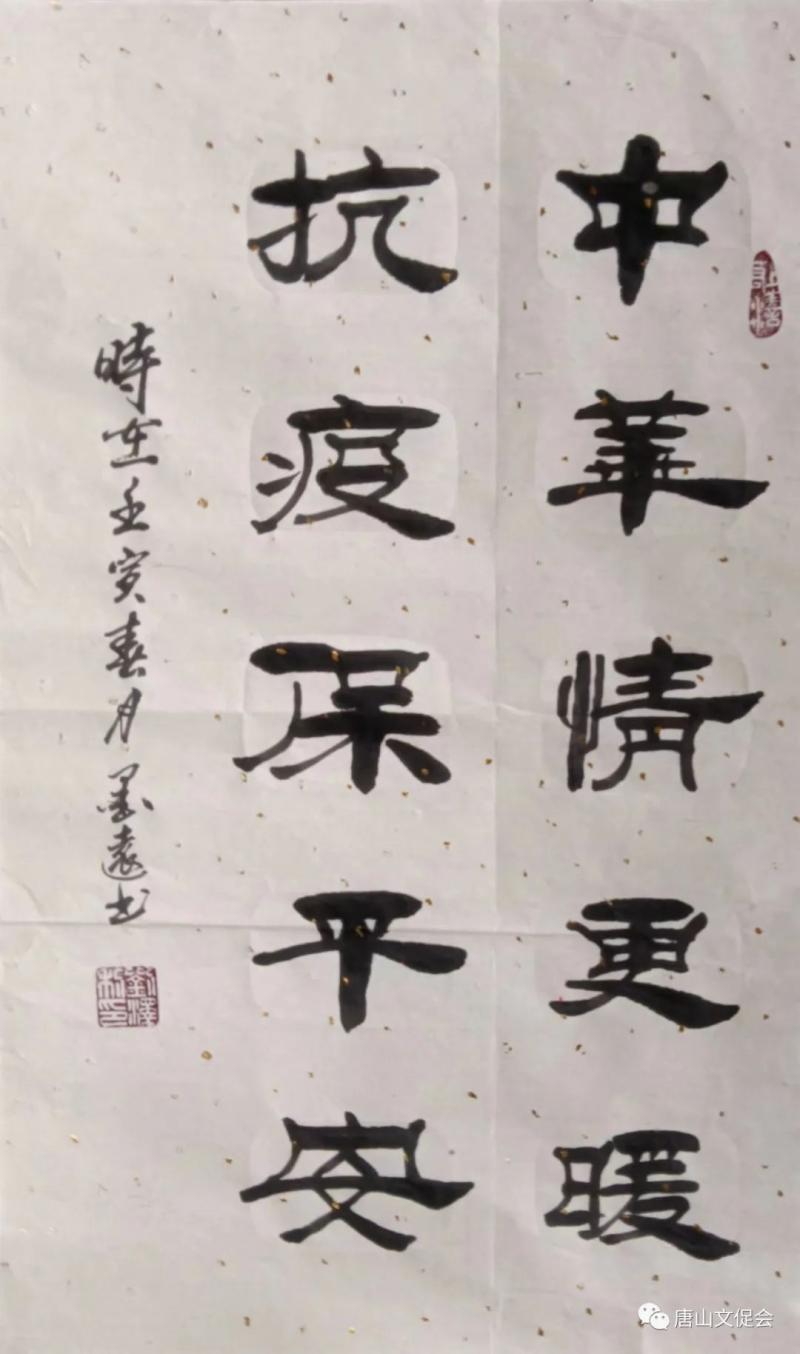 中華情更暖
抗疫保平安
時在壬寅春月墨遠书
唐山文促会